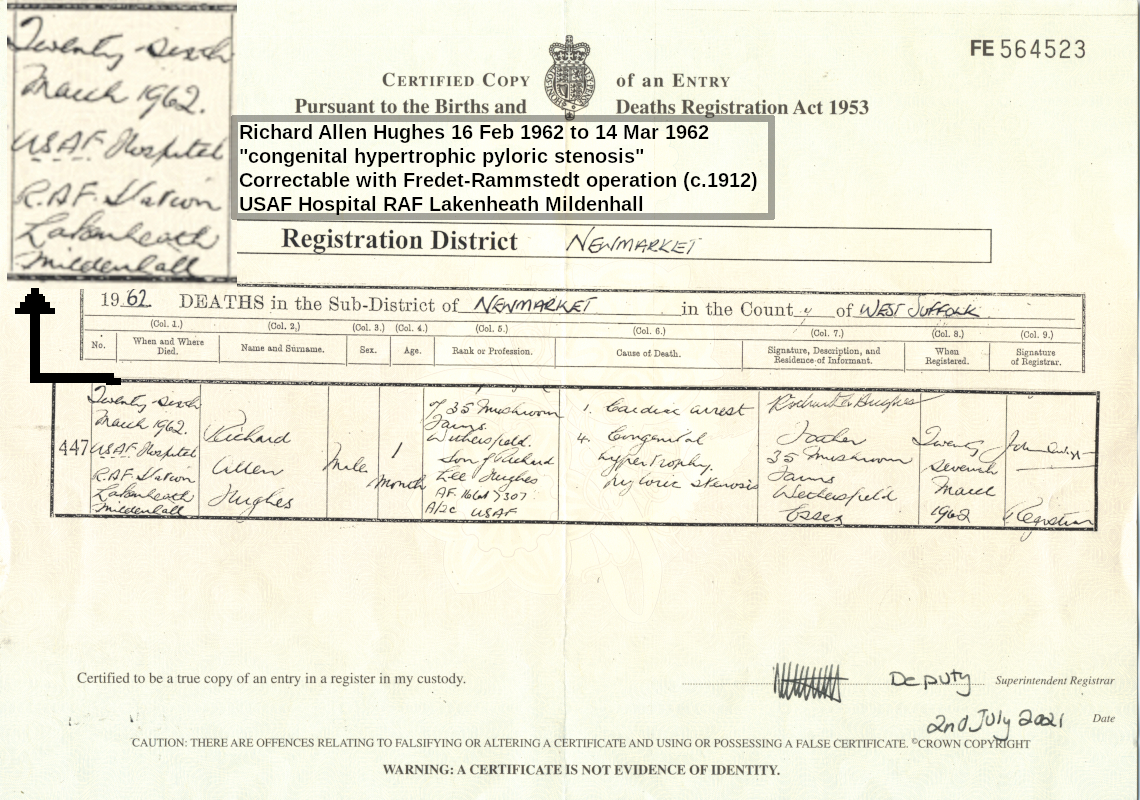 Twenty sixth
March 1962.
USAF Hospital
R.A.F. Station
Lakenheath
Mildenhall
FE 564523
CERTIFIED COPY of an ENTRY
Pursuant to the Births and Deaths Registration Act 1953
Richard Allen Hughes 16 Feb 1962 to 14 Mar 1962
"congenital hypertrophic pyloric stenosis"
Correctable with Fredet-Rammstedt operation (c.1912)
USAF Hospital RAF Lakenheath Mildenhall
Registration District NEWMARKET
1962. DEATHS in the Sub-District of NEWMARKET in the County of WEST SUFFOLK
(Col. 1.) (Col. 2,) (Col. 3.) (Col. 4.) (Col. 5.) (Col. 6.) (Col. 7.) (Col. 8.) (Col. 9.)
No.
When and Where
Died.
Name and Surname.
Sex.
Age.
Rank or Profession.
Cause of Death.
Signature, Description, and
Residence of Informant.
When
Registered.
Signature
of Registrar.
447
Twenty sixth
March 1962.
USAF Hospital
R.A.F. Station
Lakenheath
Mildenhall
Richard
Allen
Hughes
Male
1
Month
of 35 Mushroom
Farms
Wethersfield.
Son of Richard
Lee Hughes
A/2c USAF
1. Cardiac arrest
4. Congenital
hypertrophy.
Pyloric stenosis
Hughes
Father
35 Mushroom
Farms
Wethersfield
Essex
Twenty
Seventh
March
1962
John
Registrar
Certified to be a true copy of an entry in a register in my custody.
Deputy Superintendent Registrar
2nd July 2021 Date
CAUTION: THERE ARE OFFENCES RELATING TO FALSIFYING OR ALTERING A CERTIFICATE AND USING OR POSSESSING A FALSE CERTIFICATE. ©CROWN COPYRIGHT
WARNING: A CERTIFICATE IS NOT EVIDENCE OF IDENTITY.